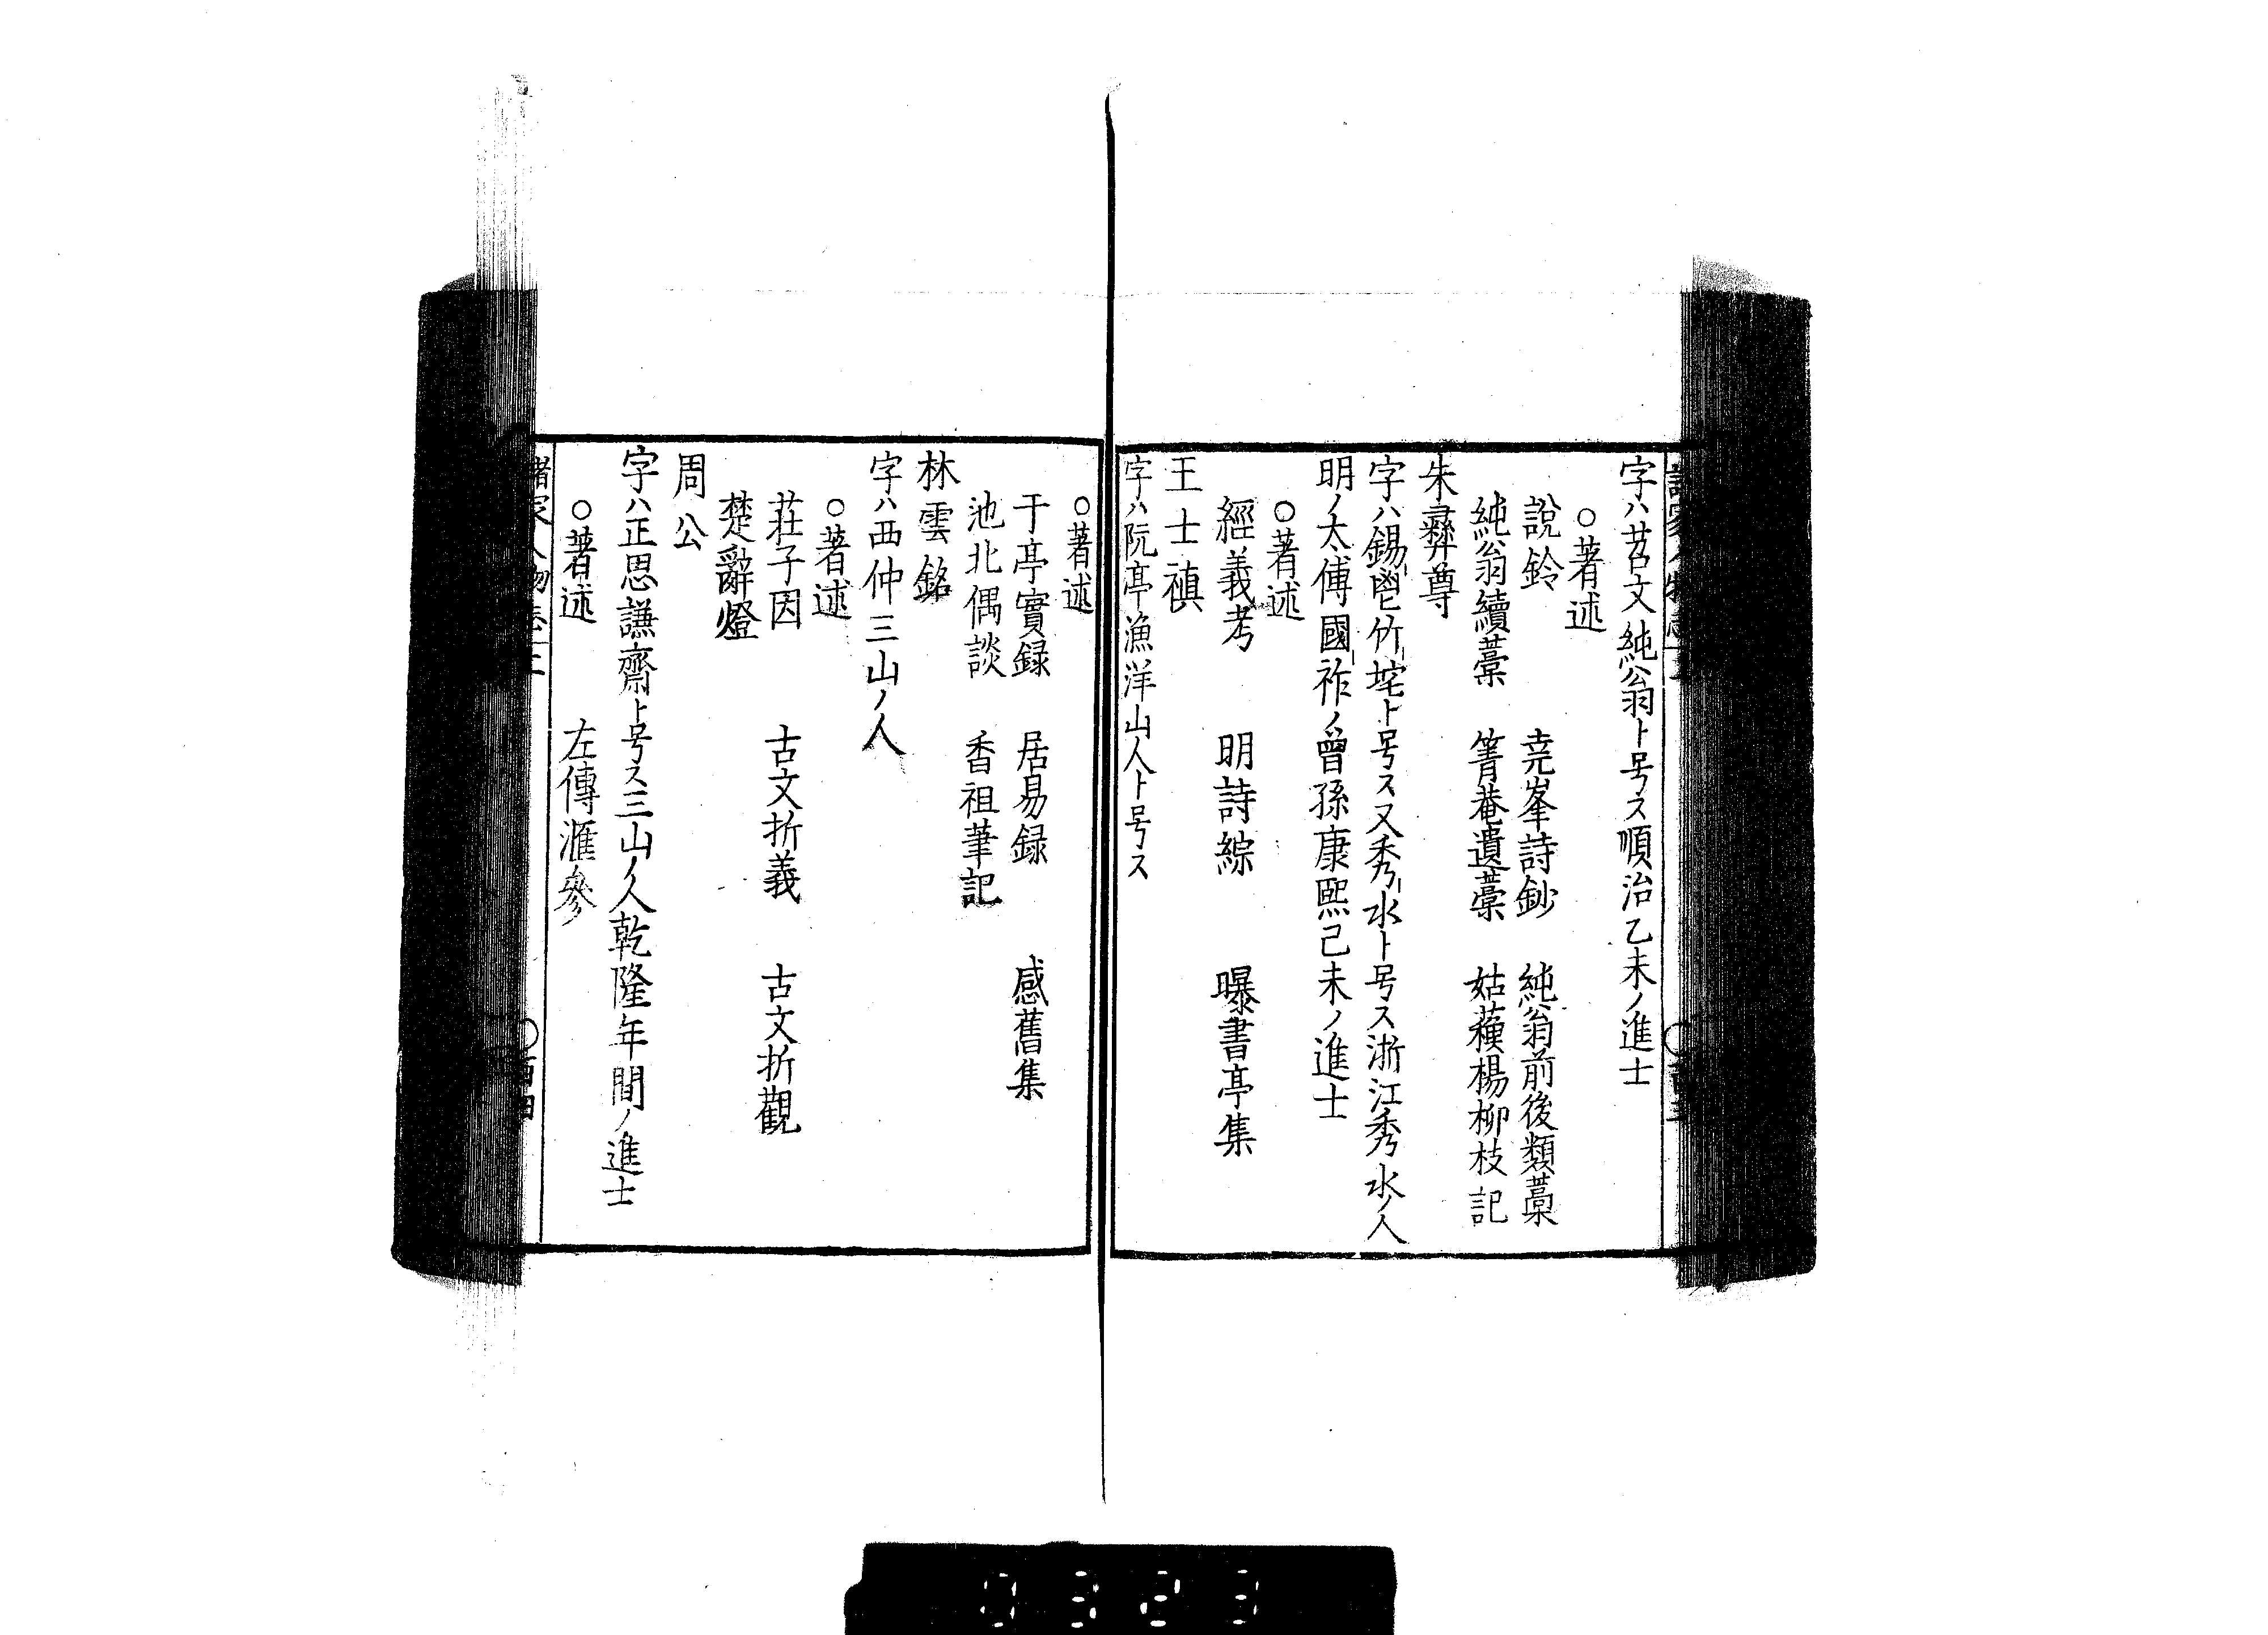 字ハ苕文純翁ト号ス順治乙未ノ進士
○著述
說鈴 尭峯詩鈔 純翁前後類藁
純翁續藁 箐菴遺藁 姑蘓楊柳枝記
朱彛尊
字ハ錫鬯竹垞ト号ス又秀水ト号ス浙江秀水ノ人
明ノ太傅國祚ノ曾孫康熈己未ノ進士
○著述
經義考 明詩綜 曝書亭集
王士禛
字ハ阮亭漁洋山人ト号ス
○著述
干亭實録 居易録 感舊集
池北偶談 香祖筆記
林雲銘
字ハ西仲三山ノ人
○著述
莊子因 古文折義 古文折觀
楚辭燈
周公
字ハ正思謙齋ト号ス三山ノ人乾隆年間ノ進士
○著述 左傳滙參
0323